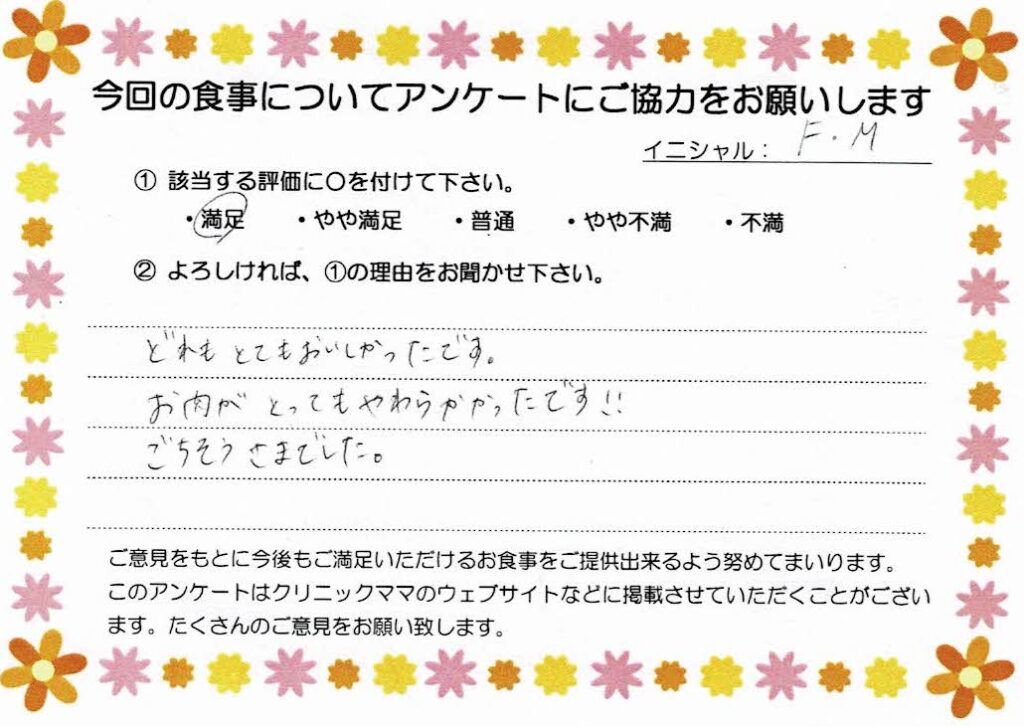 今回の食事についてアンケートにご協力をお願いします
イニシャル： F.M
① 該当する評価に〇を付けて下さい。
・満足 ・やや満足 ・普通 ・やや不満 ・不満
② よろしければ、①の理由をお聞かせ下さい。
どれもとてもおいしかったです。
お肉がとってもやわらかかったです!!
ごちそうさまでした。
ご意見をもとに今後もご満足いただけるお食事をご提供出来るよう努めてまいります。
このアンケートはクリニックママのウェブサイトなどに掲載させていただくことがござい
ます。たくさんのご意見をお願い致します。